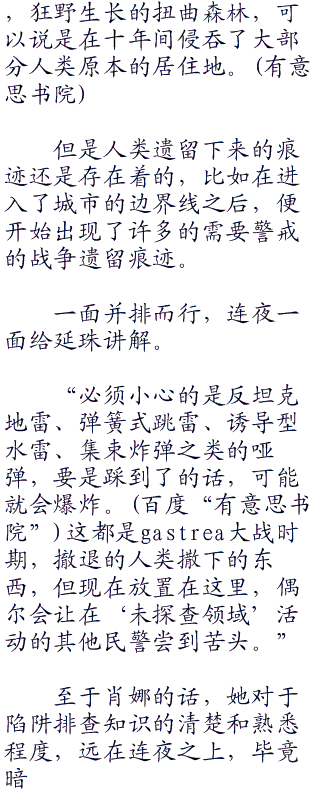 ，狂野生长的扭曲森林，可
以说是在十年间侵吞了大部
分人类原本的居住地。(有意
思书院)
但是人类遗留下来的痕
迹还是存在着的，比如在进
入了城市的边界线之后，便
开始出现了许多的需要警戒
的战争遗留痕迹。
一面并排而行，连夜一
面给延珠讲解。
“必须小心的是反坦克
地雷、弹簧式跳雷、诱导型
水雷、集束炸弹之类的哑
弹，要是踩到了的话，可能
就会爆炸。(百度“有意思书
院”)这都是gastrea大战时
期，撤退的人类撒下的东
西，但现在放置在这里，偶
尔会让在‘未探查领域’活
动的其他民警尝到苦头。”
至于肖娜的话，她对于
陷阱排查知识的清楚和熟悉
程度，远在连夜之上，毕竟
暗